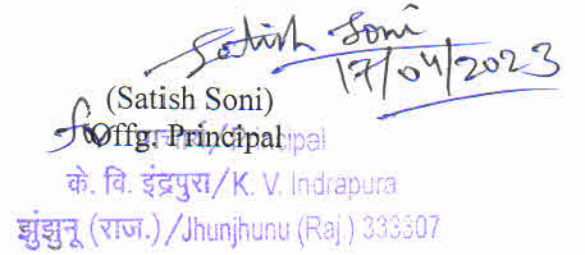 Satish Soni
17/04/2023
(Satish Soni)
for Offg. Principal
प्राचार्य/Principal
के. वि. इंद्रपुरा/K. V. Indrapura
झुंझुनू (राज.)/Jhunjhunu (Raj.) 333307